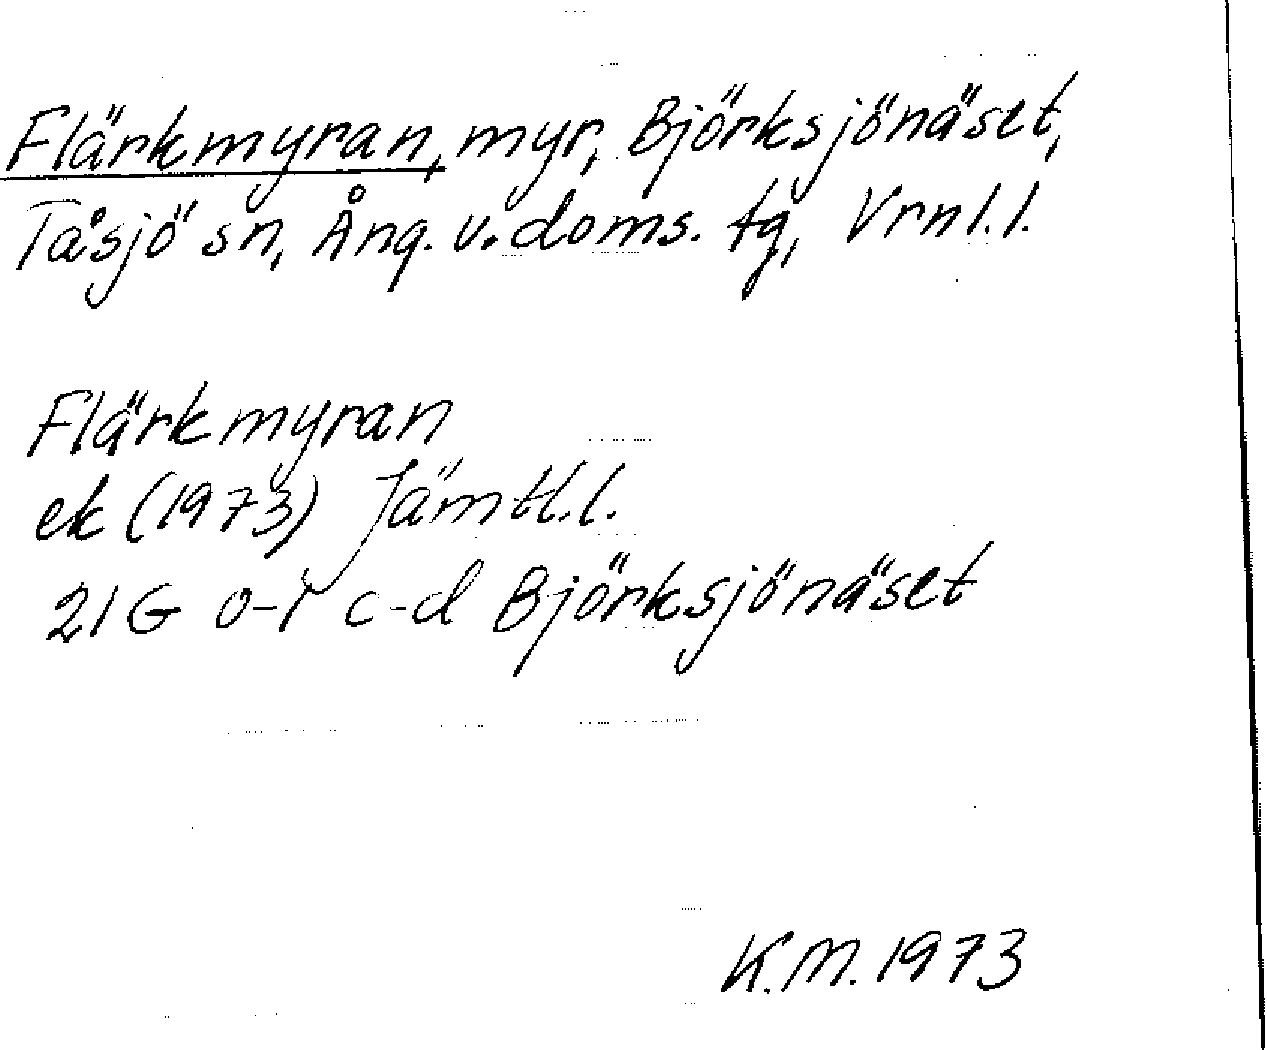 Flärkmyran, myr, Björksjönäset,
Tåsjö sn, Ång. v. doms. tg, Vrnl.l.
Flärkmyran
ek (1973) Jämtl.l.
21G o-r c-d Björksjönäset
K.M. 1973